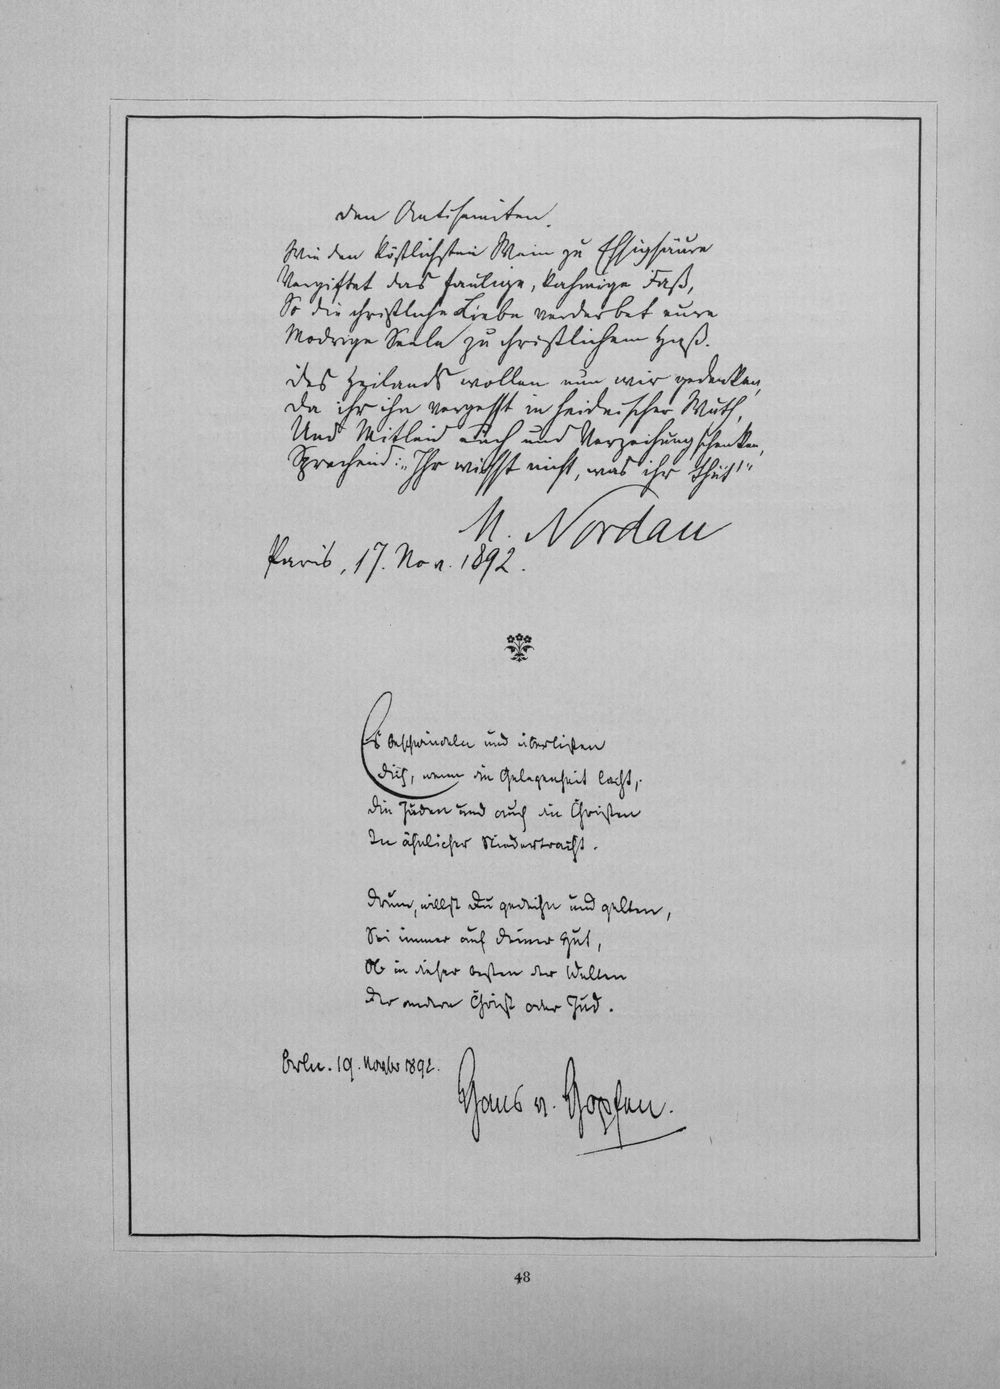 Den Antisemiten.
Wie den köstlichsten Wein zu Essigsäure
Vergiftet das faulige, kahmige Faß,
So die christliche Liebe verderbet eure
Modrige Seele zu christlichem Haß.
Des Heilands wollen nun wir gedenken,
Da ihr ihn vergesst in heidnischer Wuth,
Und Mitleid euch und Verzeihung schenken,
Sprechend: „Ihr wisst nicht, was ihr thut!"
M. Nordau
Paris, 17. Nov. 1892.
Es beschwindeln und überlisten
Dich, wenn die Gelegenheit lacht,
Die Juden und auch die Christen
In ähnlicher Niedertracht.
Drum, willst Du gedeihn und gelten,
Sei immer auf Deiner Hut,
Ob in dieser besten der Welten
Der andere Christ oder Jud.
Berlin. 19. Novbr 1892.
Hans v. Hopfen.
48